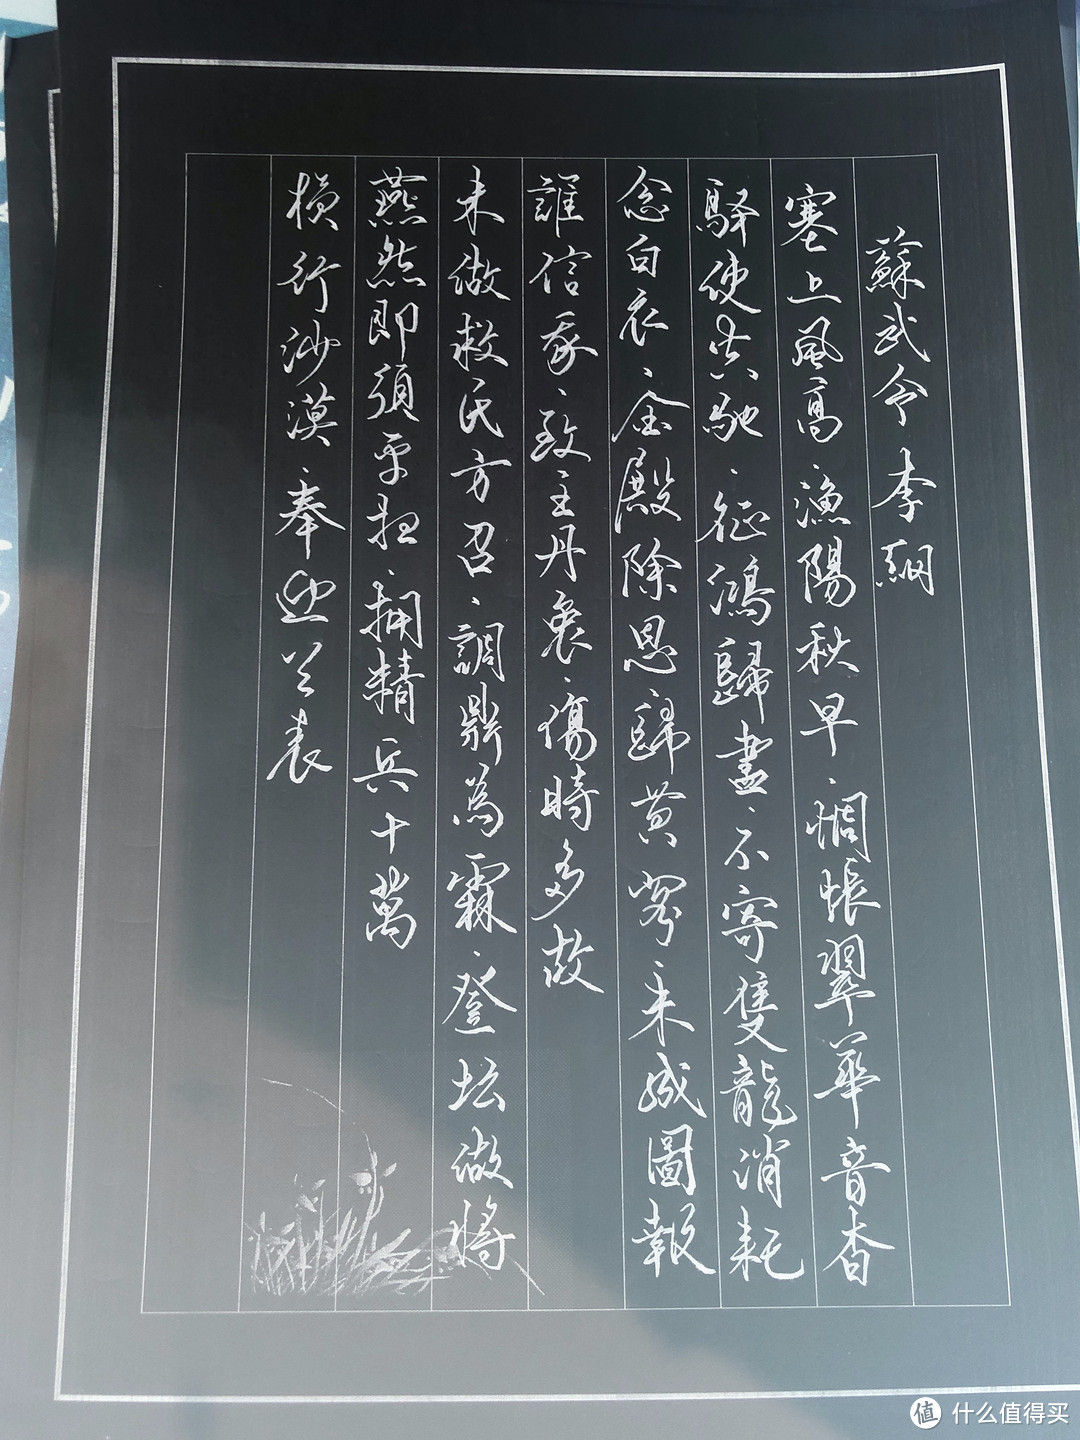 蘇武令 李綱
塞上風高 漁陽秋早、惆悵翠華音杳
驿使空馳、征鴻歸盡、不寄雙龍消耗
念白衣、金殿除恩歸黄閣、未成圖報
誰信我、致主丹衷、傷時多故
未做救民方召、調鼎為霖、登坛做將
燕然即須平掃、擁精兵十萬
横行沙漠、奉迎天表
值 什么值得买